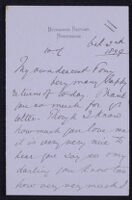 Oct 2nd
1894
My own dearest Tony
very many happy
returns of today. Thank
you so much for yr
letter. Though I know
how much you love me
it is very very nice to
hear you say so my
darling you know too
how very very much I